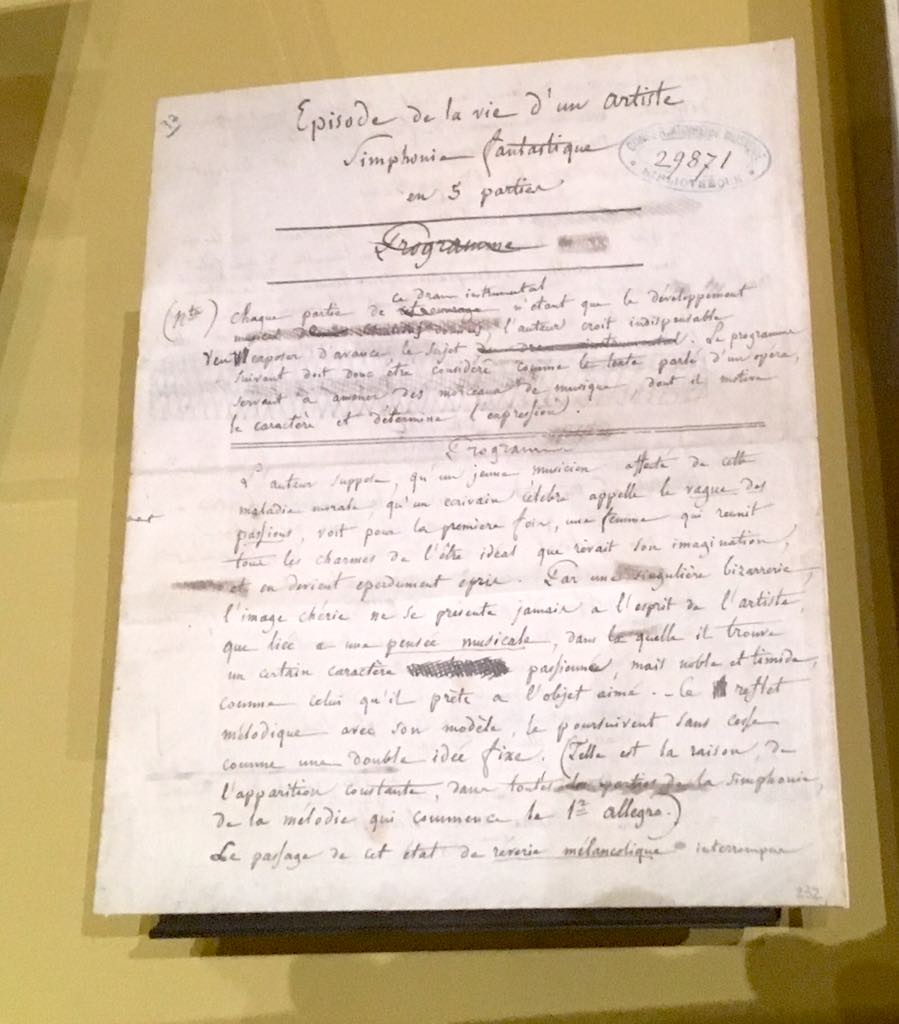 32
Episode de la vie d'un artiste
Simphonie fantastique
en 5 parties
29871
BIBLIOTHEQUE
Programme
ce dram instrumental
(Nta) Chaque partie de n'étant que le développement
musical l'auteur croit indispensable
d'exposer d'avance le sujet du drame instrumental. Le programme
suivant doit donc être considéré comme le texte parlé d'un opéra,
servant à amener des morceaux de musique, dont il motive
le caractère et détermine l'expression.
Programme
L'auteur suppose, qu'un jeune musicien affecté de cette
maladie morale, qu'un ecrivain célèbre appelle le vague des
passions, voit pour la première fois, une femme qui reunit
tous les charmes de l'être idéal que rêvait son imagination,
et en devient eperdument épris. Par une singulière bizarrerie,
l'image chérie ne se presente jamais a l'esprit de l'artiste,
que liée a une pensée musicale, dans la quelle il trouve
un certain caractère passionné, mais noble et timide,
comme celui qu'il prête a l'objet aimé. - Ce reflet
mélodique avec son modèle, le poursuivent sans cesse
comme une double idée fixe. (Telle est la raison de
l'apparition constante, dans toutes les parties de la simphonie,
de la mélodie qui commence le 1er allegro.)
Le passage de cet état de rêverie mélancolique interrompue
232